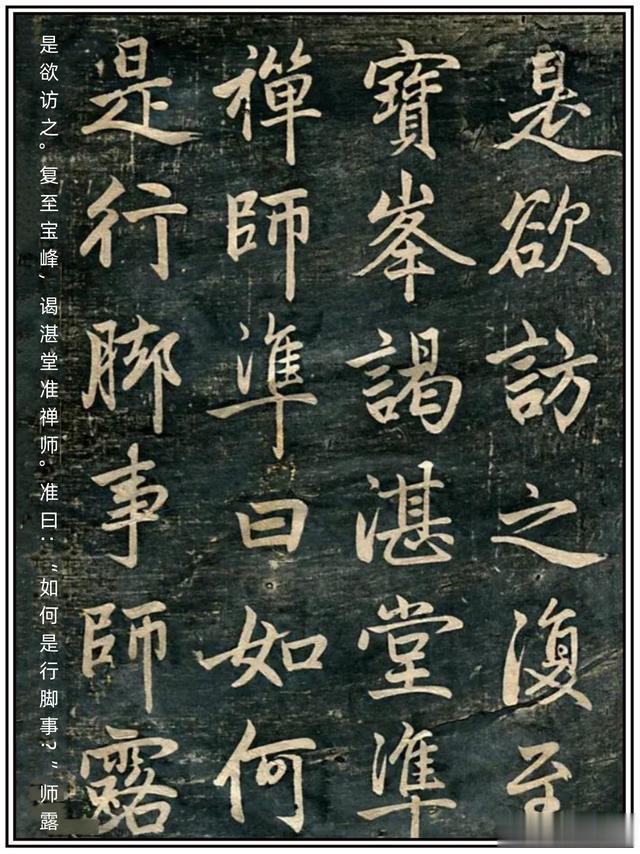 是欲訪之復至
寶峯謁湛堂準
禪師準曰如何
是行脚事師露
是欲访之。复至宝峰，谒湛堂准禅师。准曰：“如何是行脚事？”师露